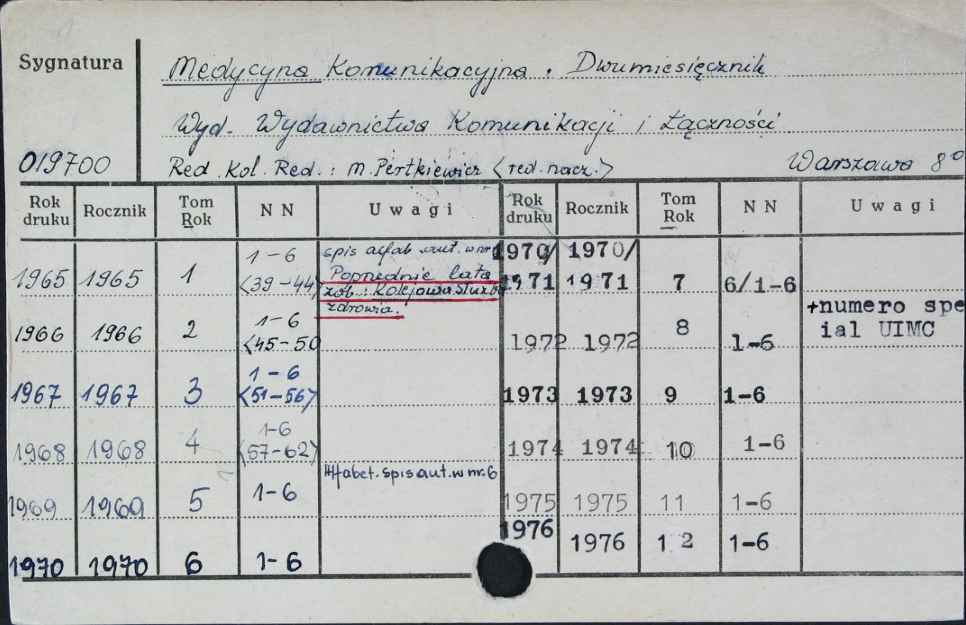 Sygnatura
Medycyna Komunikacyjna. Dwumiesięcznik
Wyd. Wydawnictwa Komunikacji i Łączności
019700 Red. Kol. Red.: M. Pertkiewicz <red. nacz.> Warszawa 8°
Rok druku Rocznik Tom Rok NN Uwagi Rok druku Rocznik Tom Rok NN Uwagi
1965 1965 1 1-6 <39-44> spis alfab. aut. w nr
Poprzednie lata
zob.: Kolejowa Służba
zdrowia.
1970/1971 1970/1971 7 6/1-6
+numero spe
ial UIMC
1966 1966 2 1-6 <45-50 1972 1972 8 1-6
1967 1967 3 1-6 <51-56> 1973 1973 9 1-6
1968 1968 4 1-6 <57-62> 1974 1974 10 1-6
1969 1969 5 1-6 Alfabet. spis aut. w nr. 6 1975 1975 11 1-6
1970 1970 6 1-6 1976 1976 12 1-6